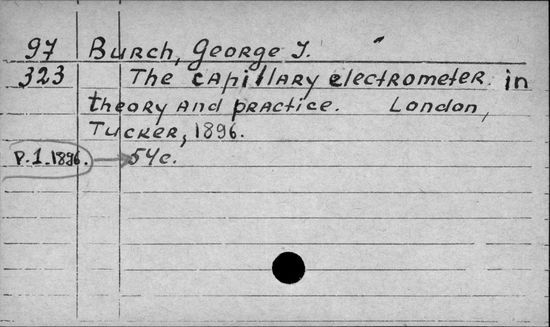 97 Burch, George J.
323 The capillary electrometer in
theory and practice. London,
Tucker, 1896.
P.1.1896. → 54c.